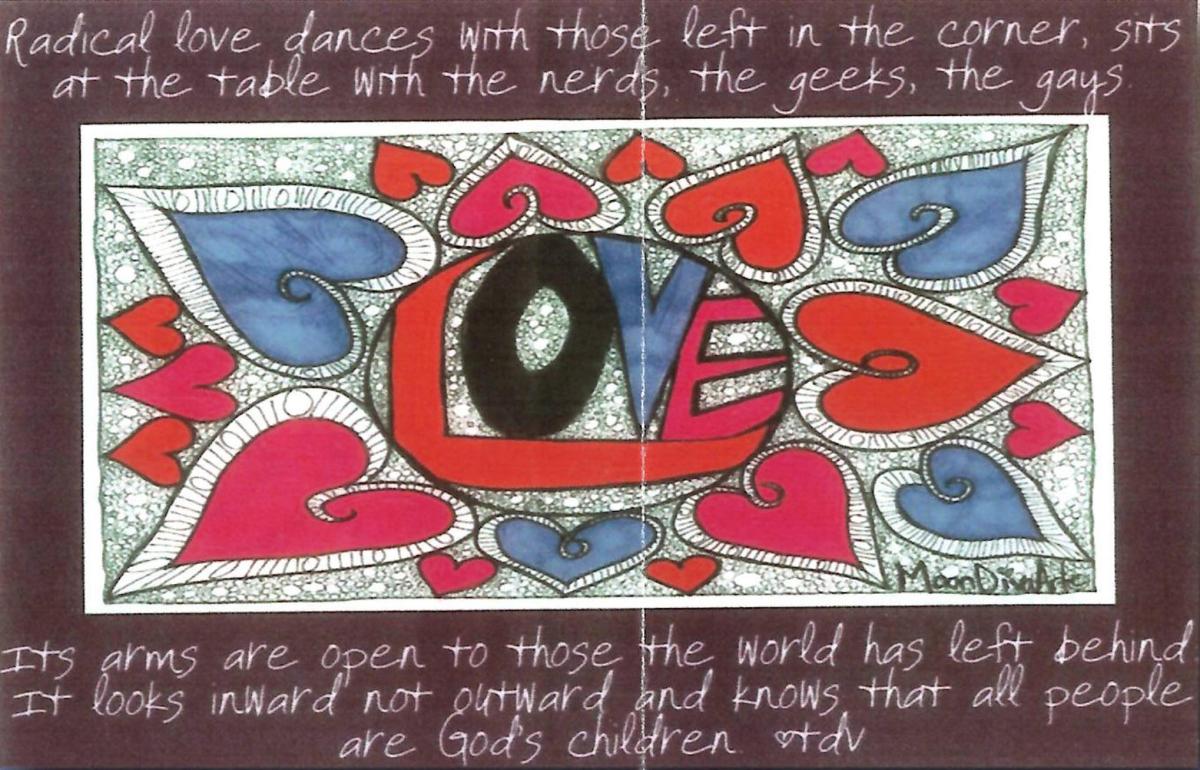 Radical love dances with those left in the corner, sits
at the table with the nerds, the geeks, the gays.
LOVE
MoonDivaArte
Its arms are open to those the world has left behind
It looks inward not outward and knows that all people
are God's children ♡tdv